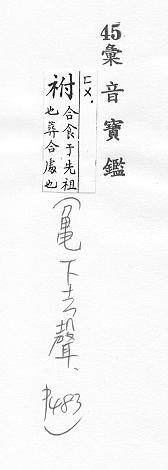 45 彙音寶鑑
ㄈㄨˋ
祔 合食于先祖
也葬合處也
(龜下去聲、P483)